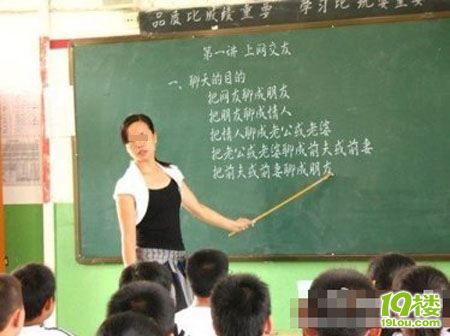 品质比成绩重要 学习比玩耍重要
第一讲 上网交友
一、聊天的目的
把网友聊成朋友
把朋友聊成情人
把情人聊成老公或老婆
把老公或老婆聊成前夫或前妻
把前夫或前妻聊成朋友
19楼
19lou.com